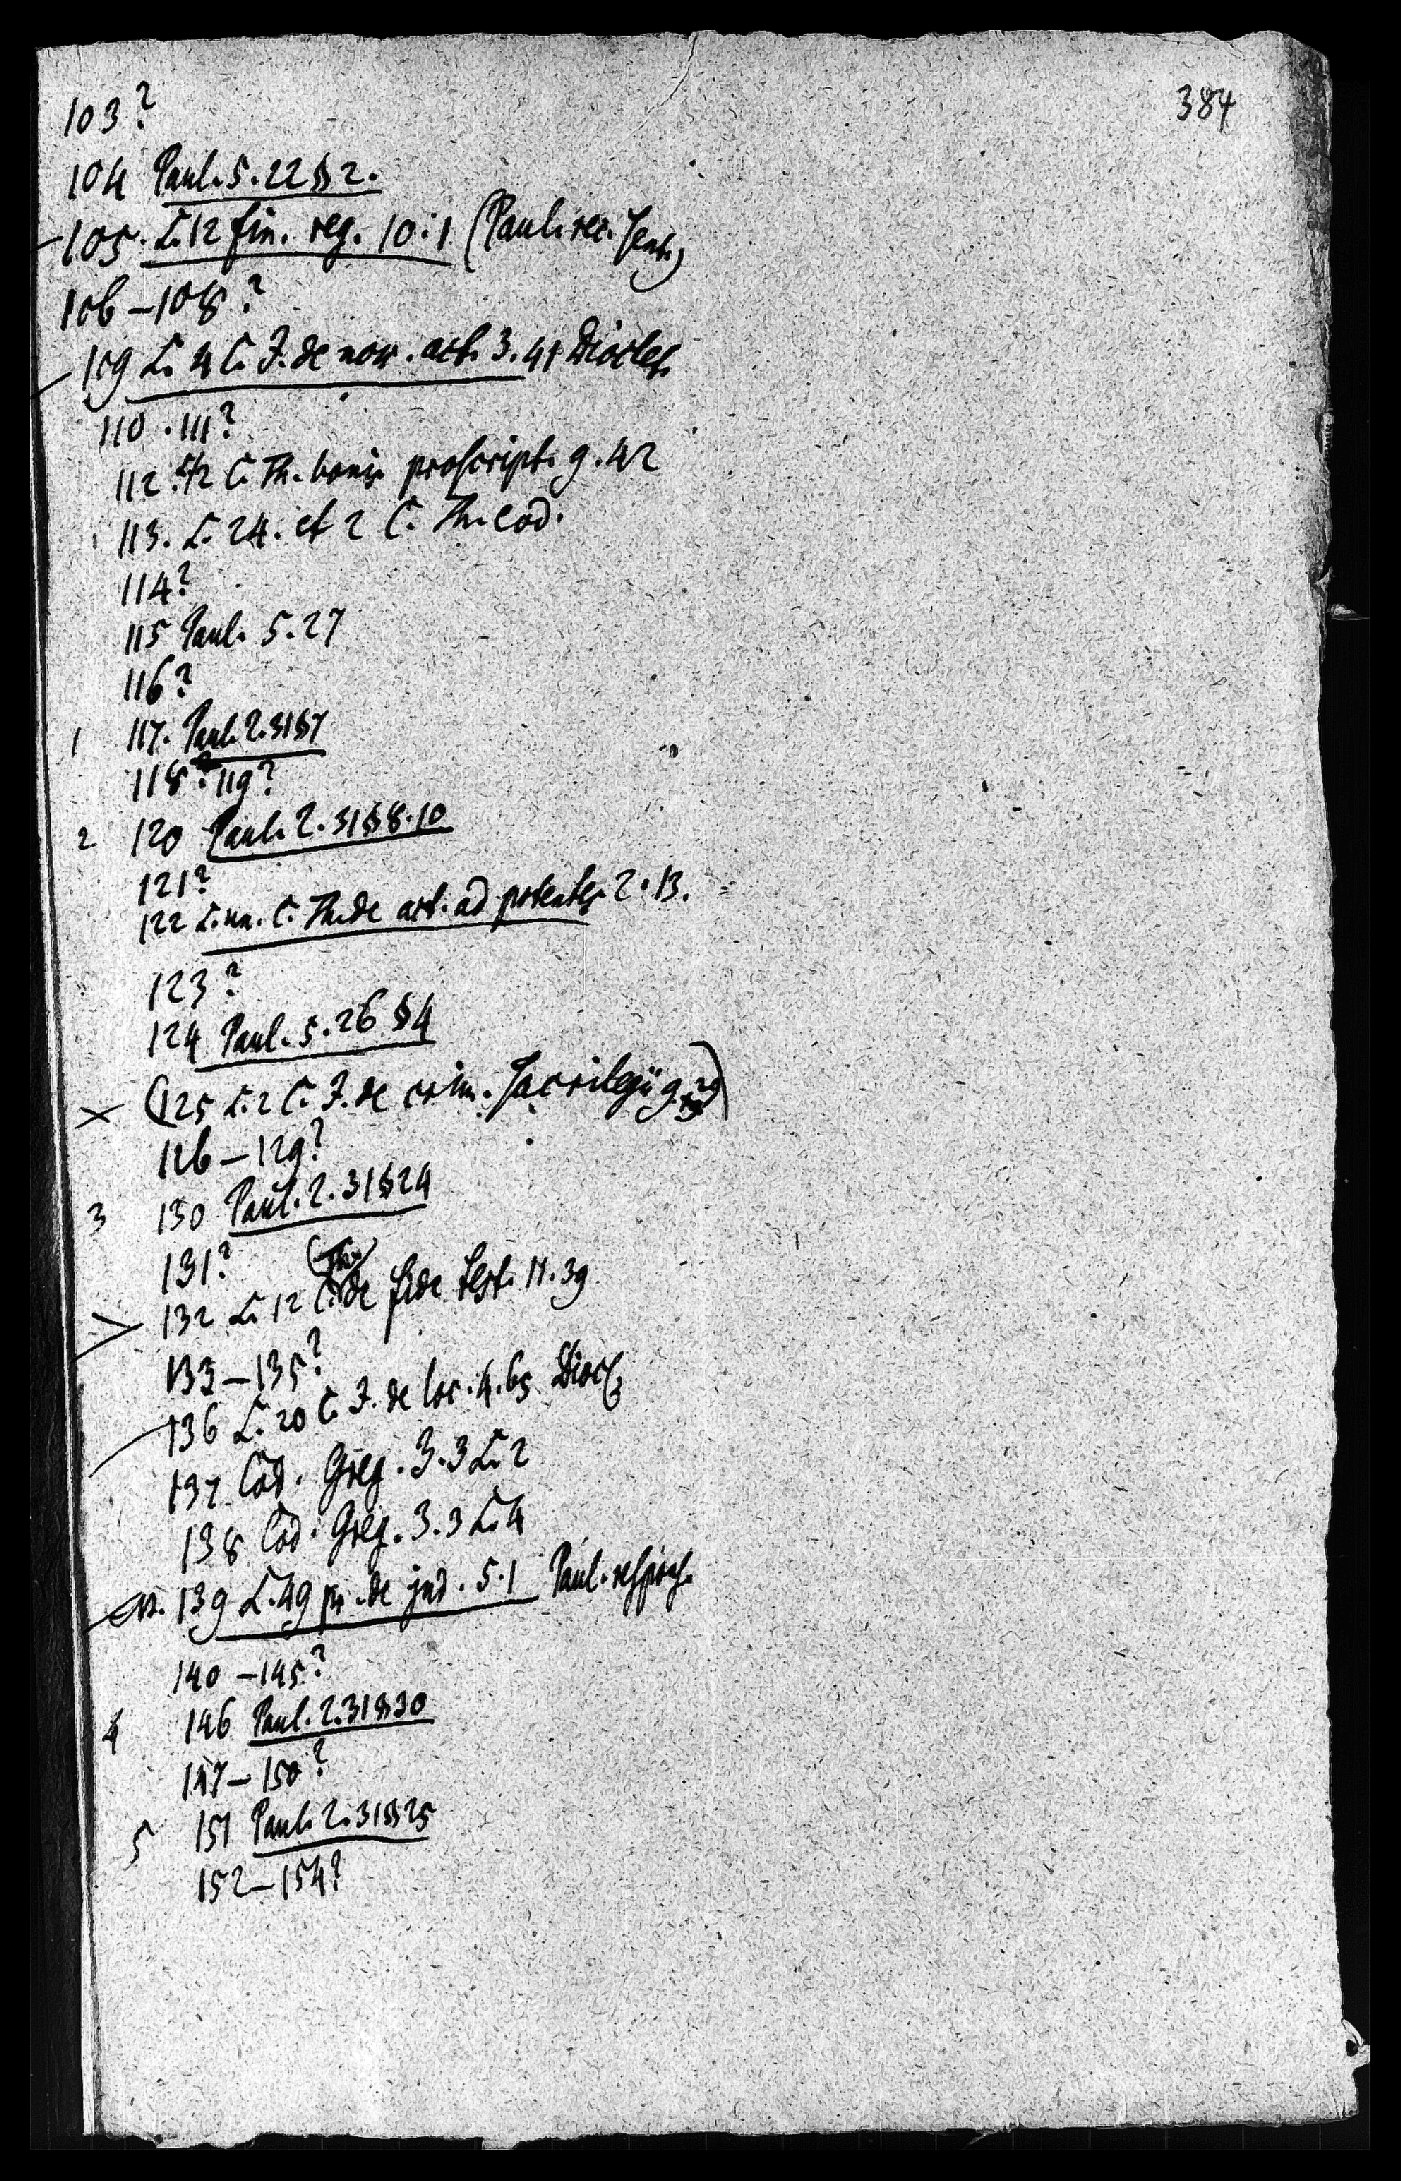 384
103?
104 Paul. 5. 22 § 2.
105. L. 12 fin. reg. 10. 1 (Paul. rec. sent.)
106 – 108?
109 L. 4 C. J. de nov. act. 3. 41 Dioclet.
110 . 111?
112. L. 2 C. Th. bonis proscript. 9. 42
113. L. 24. et 2 C. Th. eod.
114?
115 Paul. 5. 27
116?
1 117. Paul. 2. 31 § 7
118? 119?
2 120 Paul. 2. 31 § 8. 10
121?
122 L. un. C. Th. de act. ad potentes 2. 13.
123?
124 Paul. 5. 26 § 4
× (125 L. 2 C. J. de crim. sacrilegii 9. 29)
126 – 129?
3 130 Paul. 2. 31 § 24
131?
(Th.)
132 L. 12 C. de fide test. 11. 39
133 – 135?
136 L. 20 C. J. de loc. 4. 65 Diocl.
137 Cod. Greg. 3. 3 L. 2
138 Cod. Greg. 3. 3 L. 4
139 L. 49 pr. de jud. 5. 1 Paul. respons.
140 – 145?
4 146 Paul. 2. 31 § 30
147 – 150?
5 151 Paul. 2. 31 § 25
152 – 154?